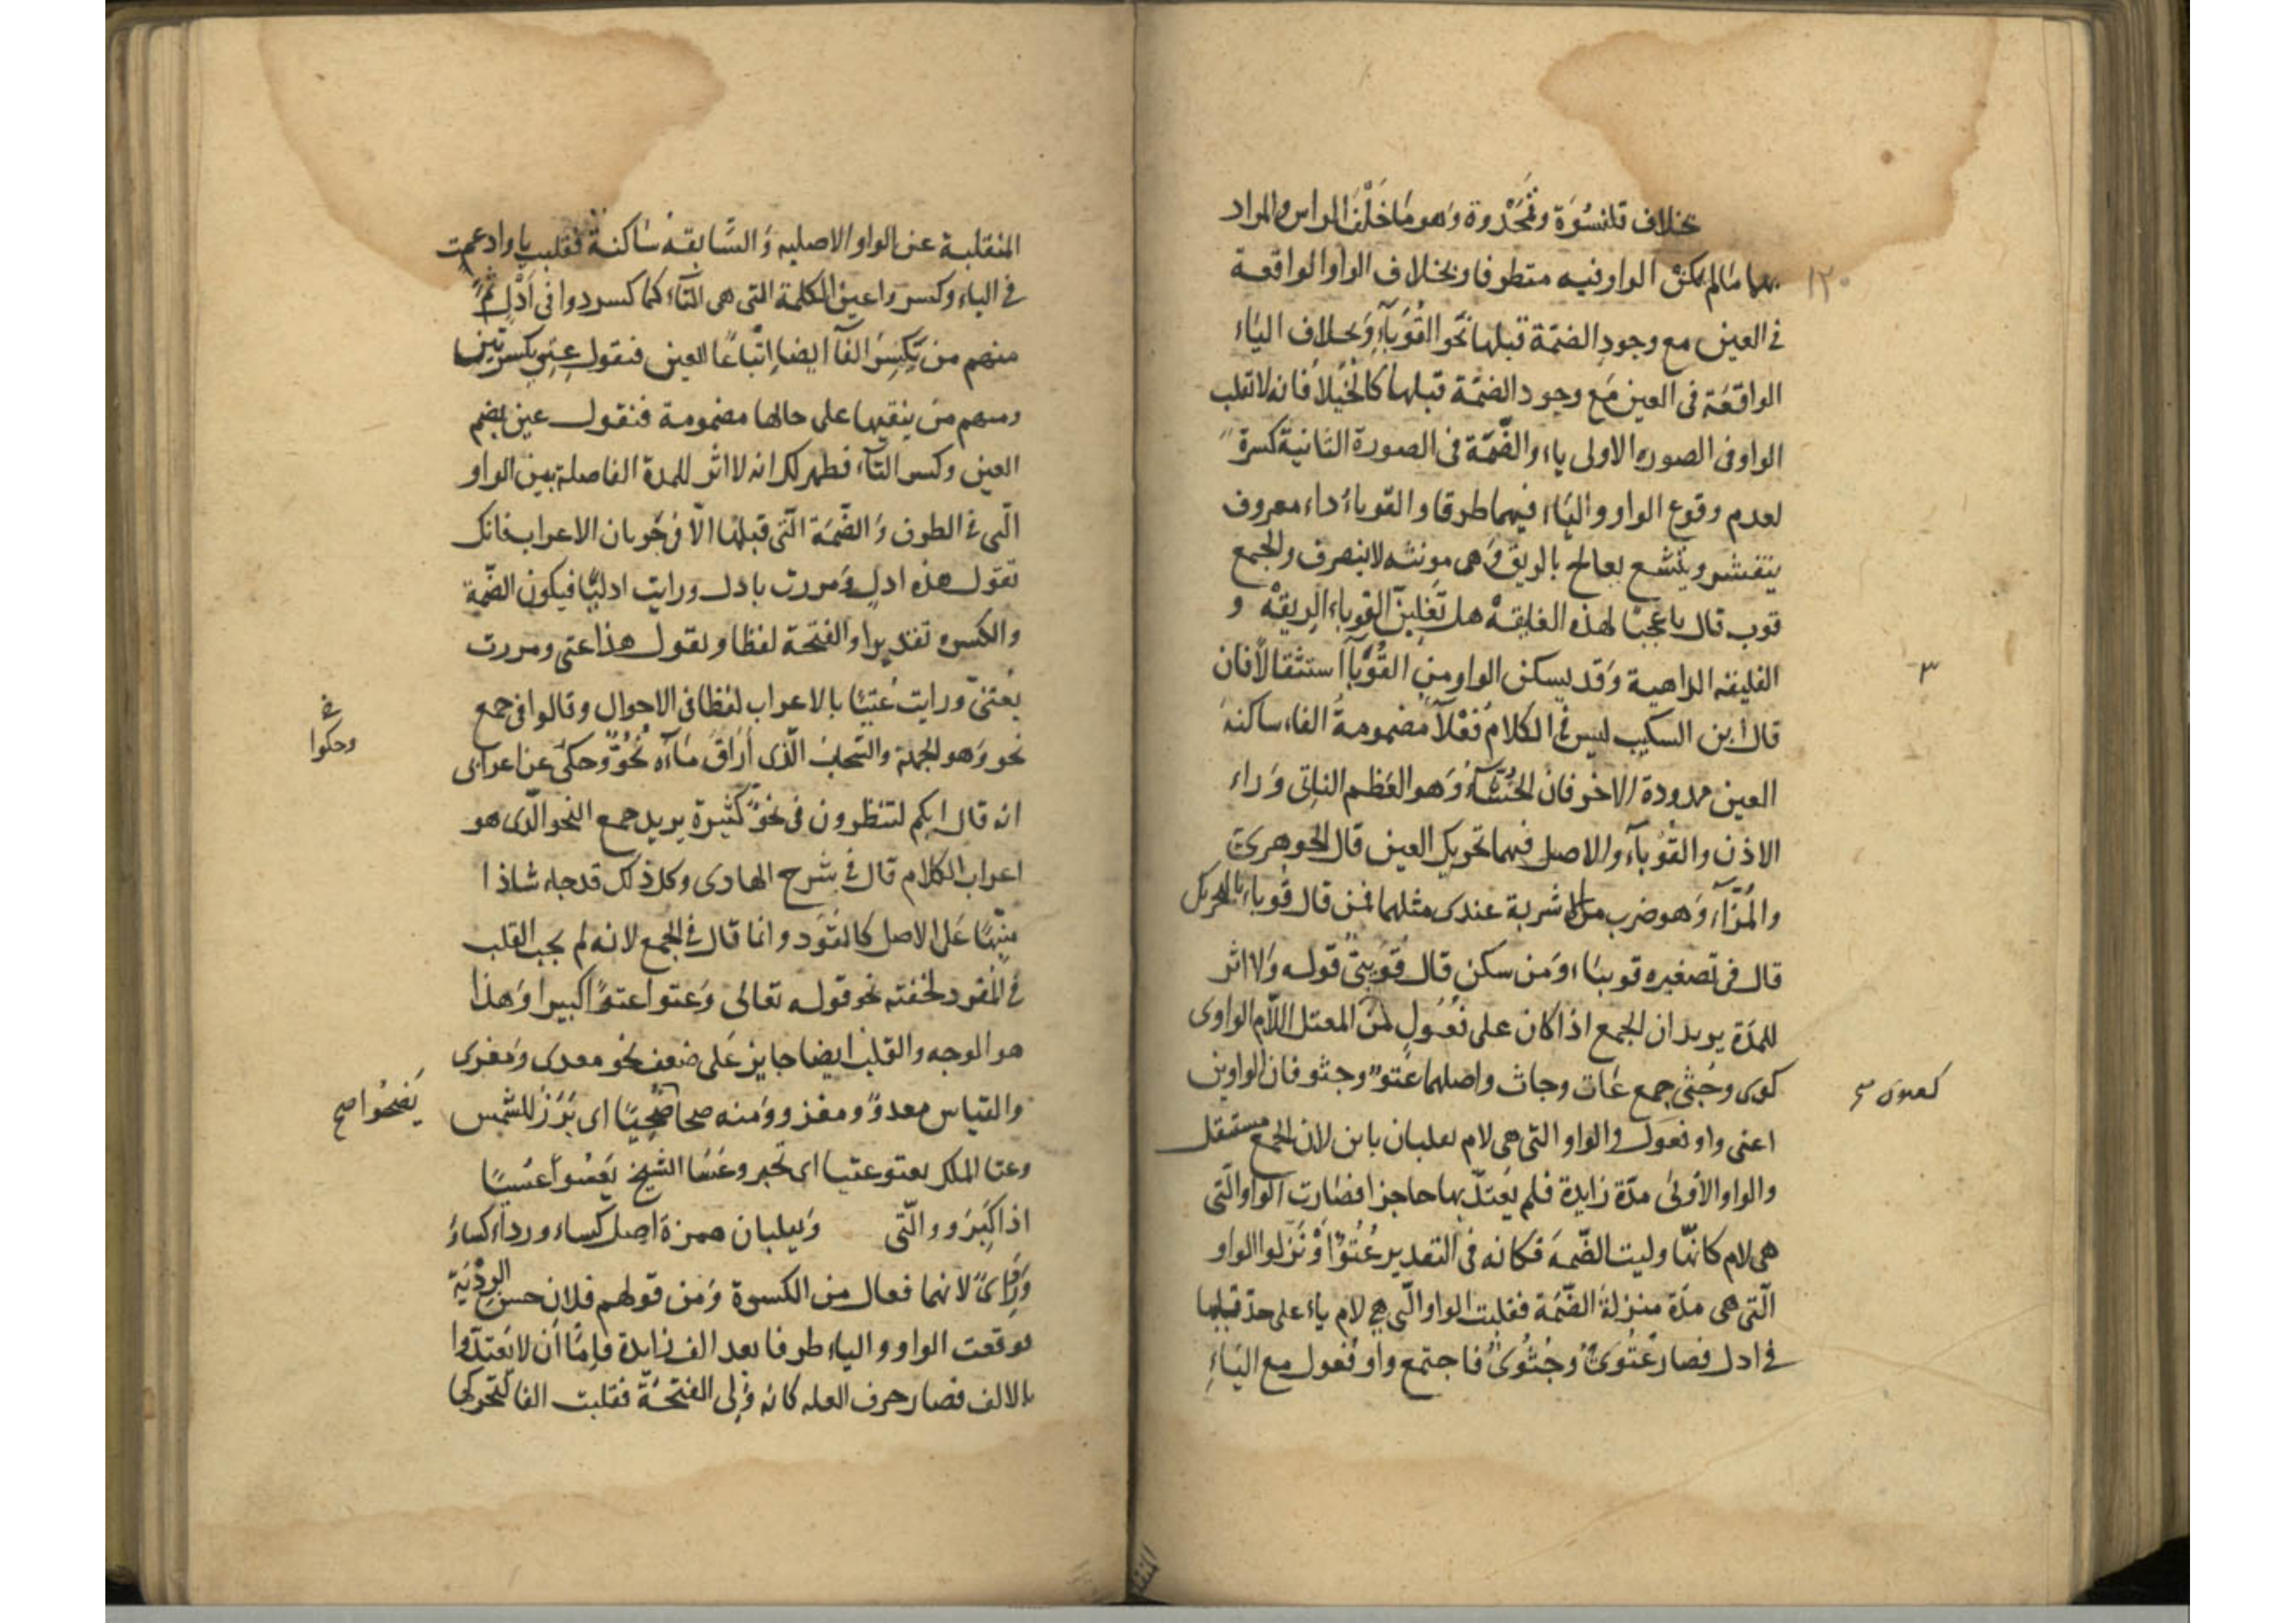 بخلاف قلنسوة وقمحدوة وهو ما خلف الراس والمراد
بهما ما لم يكن الواو فيه متطرفا وبخلاف الواو الواقعة
في العين مع وجود الضمة قبلها نحو القُوَبآء وبخلاف الياء
الواقعة في العين مع وجود الضمة قبلها كالخُيَلاء فانه لا تقلب
الواو في الصورة الاولى ياء والضمّة في الصورة الثانية كسرة
لعدم وقوع الواو والياء فيهما طرفا والقوباء داء معروف
يتقشر ويتسع يعالج بالريق وهي مونثه لا ينصرف والجمع
قوب قال يا عجبا لهذه الفليقهْ هل تغلبنّ القوباء الريقهْ و
الفليقه الداهية وقد يسكن الواو من القُوَبآء استثقالا فان
قال ابن السكيت ليس في الكلام فُعْلآء مضمومة الفاء ساكنة
العين ممدودة الاخر فان الخُشّآء وهو العظم الناتي وراء
الاذن والقُوْبآء والاصل فيهما تحريك العين قال الجوهري
والمُزّآء وهو ضرب من الاشربة عندى مثلهما فمن قال قوباء بالتحريك
قال في تصغيره قويباء ومن سكن قال قُوَيبيّ قوله ولا اثر
للمدّة يريد ان الجمع اذا كان على فُعُول من المعتل اللام الواوى
كعتى وجُثى جمع عات وجاث واصلهما عتوّ وجثو فان الواوين
كعتى
اعنى واو فعول والواو التى هى لام تقلبان ياين لان الجمع مستثقل
والواو الأولى مدّة زايدة فلم يُعتدّ بها حاجزا فصارت الواو التى
هى لام كانّها وليت الضّمة فكانه في التقدير عُتُوٌ او نزلوا الواو
الّتى هى مدّة منزلة الضّمة فقلبت الواو الّتى هي لام ياء على حدّ قلبها
في ادل فصار عُتُوىٌ وجُثُوىٌ فاجتمع واو فُعول مع الياء
المنقلبة عن الواو الاصليه والسّابقة ساكنة فقلبت يا وادغمت
في الياء وكسروا عين الكلمة التى هى التاء كما كسروا في أَدْلٍ ثم
منهم من يكسر الفآ ايضا اتباعًا للعين فتقول عِتِي بكسرتين
ومنهم من يبقيها على حالها مضمومة فتقول عتي بضم
العين وكسر التآء فظهر لك انه لا اثر للمدة الفاصلة بين الواو
الّتى في الطرف والضّمة الّتى قبلها الّا في جريان الاعراب فانك
تقول هذه ادلٍ ومررت بادل ورايت ادليًا فيكون الضّمة
والكسره تقديرا والفتحة لفظا وتقول هذا عتى ومررت
بعُتىّ ورايت عُتيّا بالاعراب لفظا في الاحوال وقالوا في جمع
نحو وهو الجهة والسّحاب الّذى أراق مآءه نُحُوٌّ وحكى عن اعرابى
وحكوا
انه قال انكم لتنظرون في نحوّ كثيرة يريد جمع النحو الّذى هو
اعراب الكلام قال في شرح الهادى وكل ذلك قد جاء شاذا
منبّها على الاصل كالقود وانما قال في الجمع لانه لم يجب القلب
في المفرد لخفته نحو قوله تعالى وعتوا عتوًّا كبيرا وهذا
هو الوجه والقلب ايضا جايز على ضعف نحو معدى ومغزى
والقياس معدوّ ومغزو ومنه ضحا ضُحِيّا اى برز للشمس
يضحُوا صح
وعتا الملك يعتو عتيا اى تجبر وعَسَا الشيخ يعسُوا عُسيّا
اذا كبر وولّى وتقلبان همزة اصل كساء ورداء كساوٌ
ورداىٌ لانهما فعال من الكسوة ومن قولهم فلان حسن الرِدْيَة
فوقعت الواو والياء طرفا بعد الف زايدة فإمّا أن لا يعتدّوا
بالالف فصار حرف العله كانه ولى الفتحة فقلبت الفا لتحركها